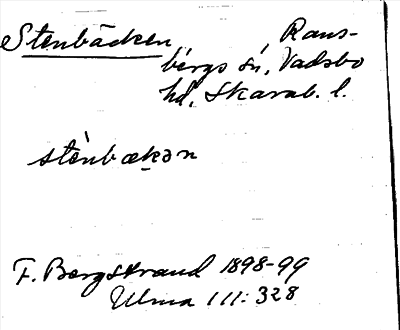 Stenbäcken, Rans-
bergs sn, Vadsbo
hd, Skarab. l.
stènbækən
F. Bergstrand 1898-99
Ulma 111:328